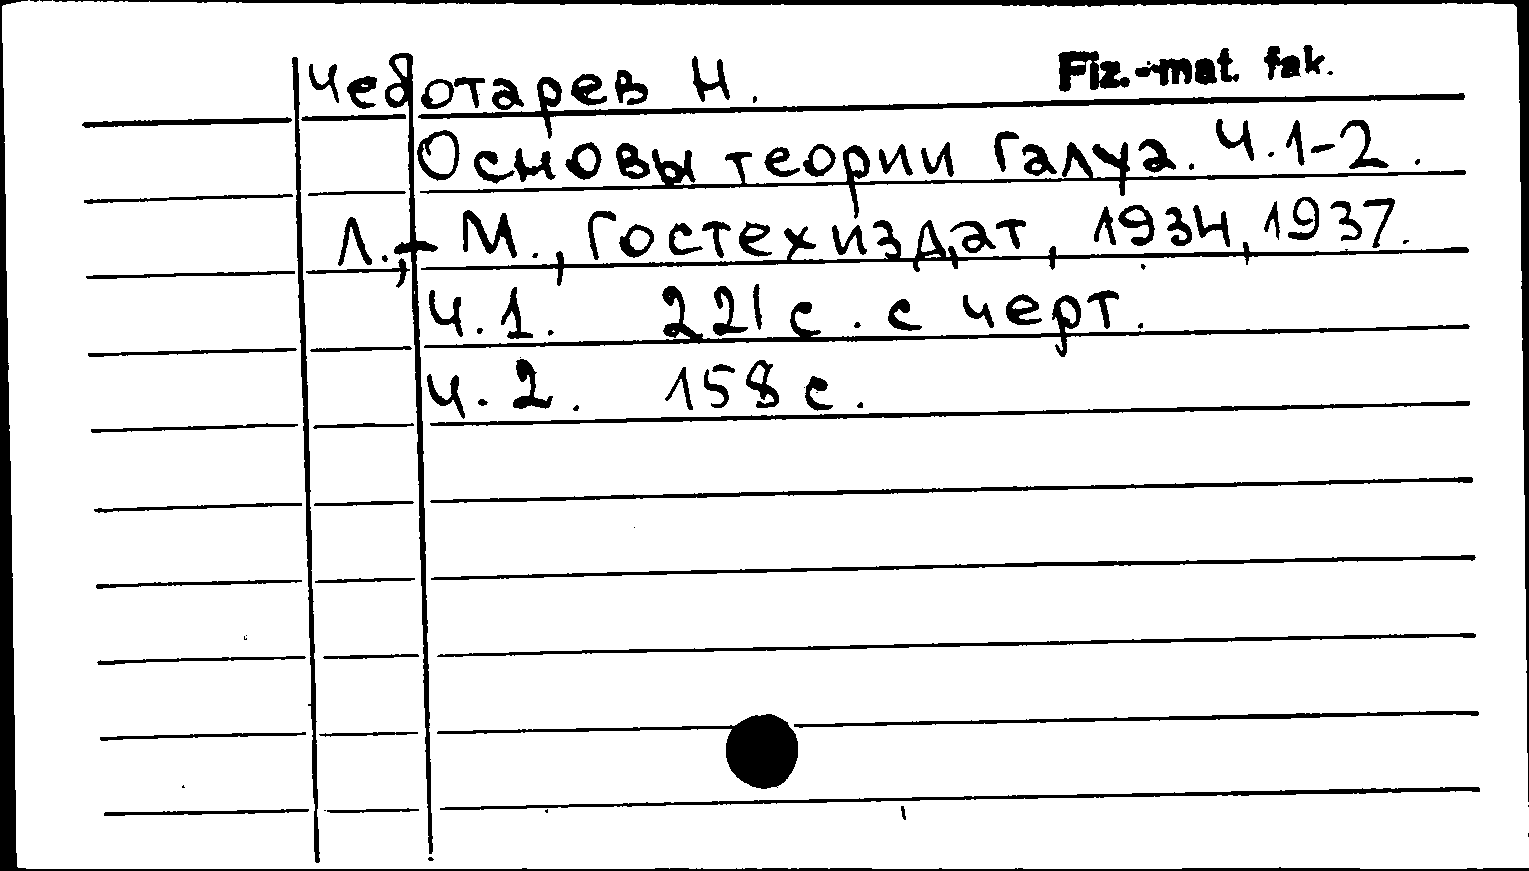 Чеботарев Н. Fiz.-mat. fak.
Основы теории Галуа. Ч.1-2.
Л.,-М., Гостехиздат, 1934, 1937.
Ч.1. 221 с. с черт.
Ч.2. 158 с.